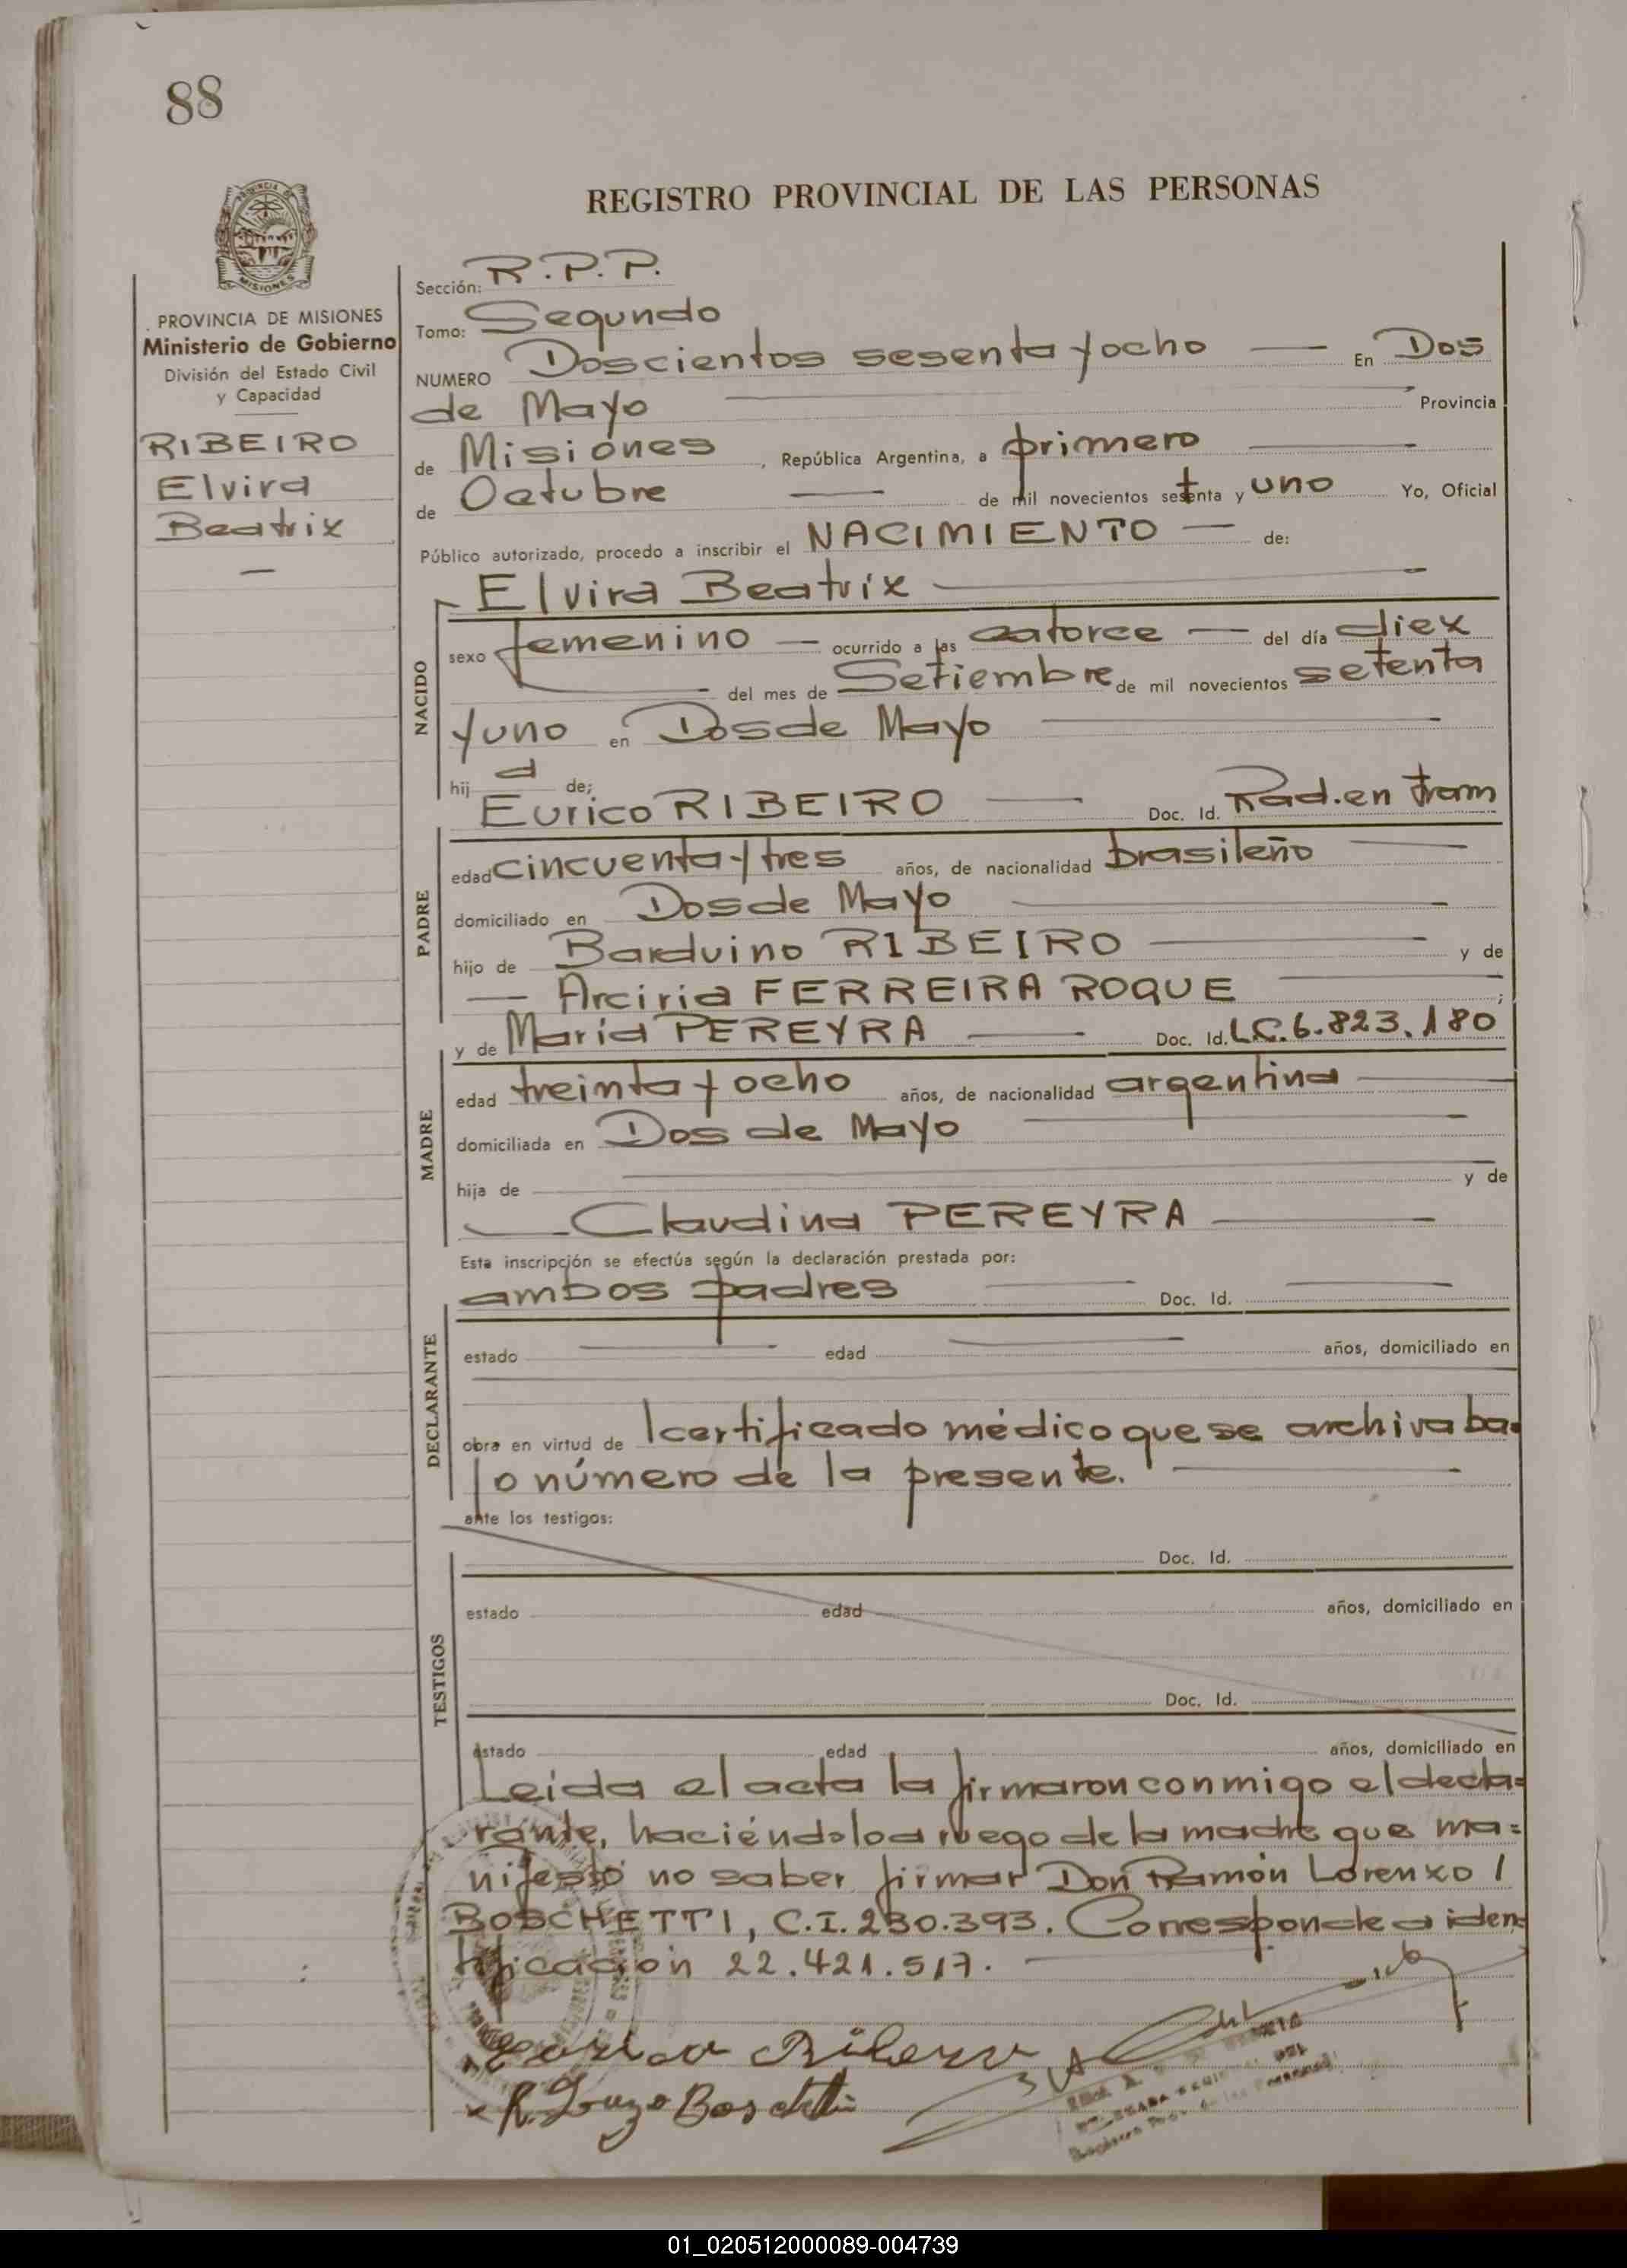 88
REGISTRO PROVINCIAL DE LAS PERSONAS
MISIONES
PROVINCIA DE MISIONES
Ministerio de Gobierno
División del Estado Civil
y Capacidad
RIBEIRO
Elvira
Beatrix
Sección: R.P.P.
Tomo: Segundo
NUMERO Doscientos sesenta y ocho En Dos
de Mayo Provincia
de Misiones, República Argentina, a primero
de Octubre de mil novecientos setenta y uno Yo, Oficial
Público autorizado, procedo a inscribir el NACIMIENTO de:
Elvira Beatrix
NACIDO
sexo femenino ocurrido a las catorce del día diex
del mes de Setiembre de mil novecientos setenta
y uno en Dos de Mayo
hija de;
Eurico RIBEIRO Doc. Id. Rad. en tram
PADRE
edad cincuenta y tres años, de nacionalidad brasileño
domiciliado en Dos de Mayo
hijo de Barduino RIBEIRO y de
Arciria FERREIRA ROQUE;
y de María PEREYRA Doc. Id. L.C. 6.823.180
MADRE
edad treinta y ocho años, de nacionalidad argentina
domiciliada en Dos de Mayo
hija de y de
Claudina PEREYRA
Esta inscripción se efectúa según la declaración prestada por:
ambos padres Doc. Id.
DECLARANTE
estado edad años, domiciliado en
obra en virtud de l certificado médico que se archiva ba=
jo número de la presente.
ante los testigos:
TESTIGOS
Doc. Id.
estado edad años, domiciliado en
Doc. Id.
estado edad años, domiciliado en
Leida el acta la firmaron conmigo el decla=
rante, haciéndolo a ruego de la madre que ma=
nifestó no saber firmar Don Ramón Lorenxo /
BOSCHETTI, C.I. 230.393. Corresponde a iden=
tificación 22.421.517.
Eurico Ribero
R. Lorenzo Boschetti
01_020512000089-004739